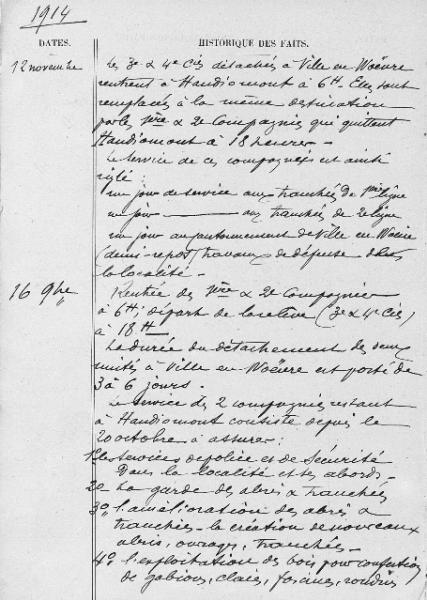 1914
DATES. HISTORIQUE DES FAITS.
12 novembre Les 3e & 4e Cies détachés à Ville en Woëvre
rentrent à Haudiomont à 6H. Elles sont
remplacés à la même destination
par les 1ère & 2e Compagnies qui quittent
Haudiomont à 18 heures.-
Le service de ces compagnies est ainsi
réglé :
un jour de service aux tranchées de 1ère ligne
un jour ——— aux tranchées de 2e ligne
un jour au cantonnement de Ville en Woëvre
(demi-repos) travaux de défense dans
la localité.-
16 9bre Rentrée des 1ère & 2e Compagnies
à 6H; départ de la relève (3e & 4e Cies)
à 18H
La durée du détachement des deux
unités à Ville en Woëvre est porté de
3 à 6 jours.
Le service des 2 compagnies restant
à Haudiomont consiste depuis le
20 octobre à assurer :
1o les services de police et de sécurité
Dans la localité et ses abords.-
2o La garde des abris & tranchées
3o l'amélioration des abris &
tranchées - la création de nouveaux
abris, ouvrages, tranchées.-
4o l'exploitation des bois pour confection
de gabions, claies, fascines, rondins